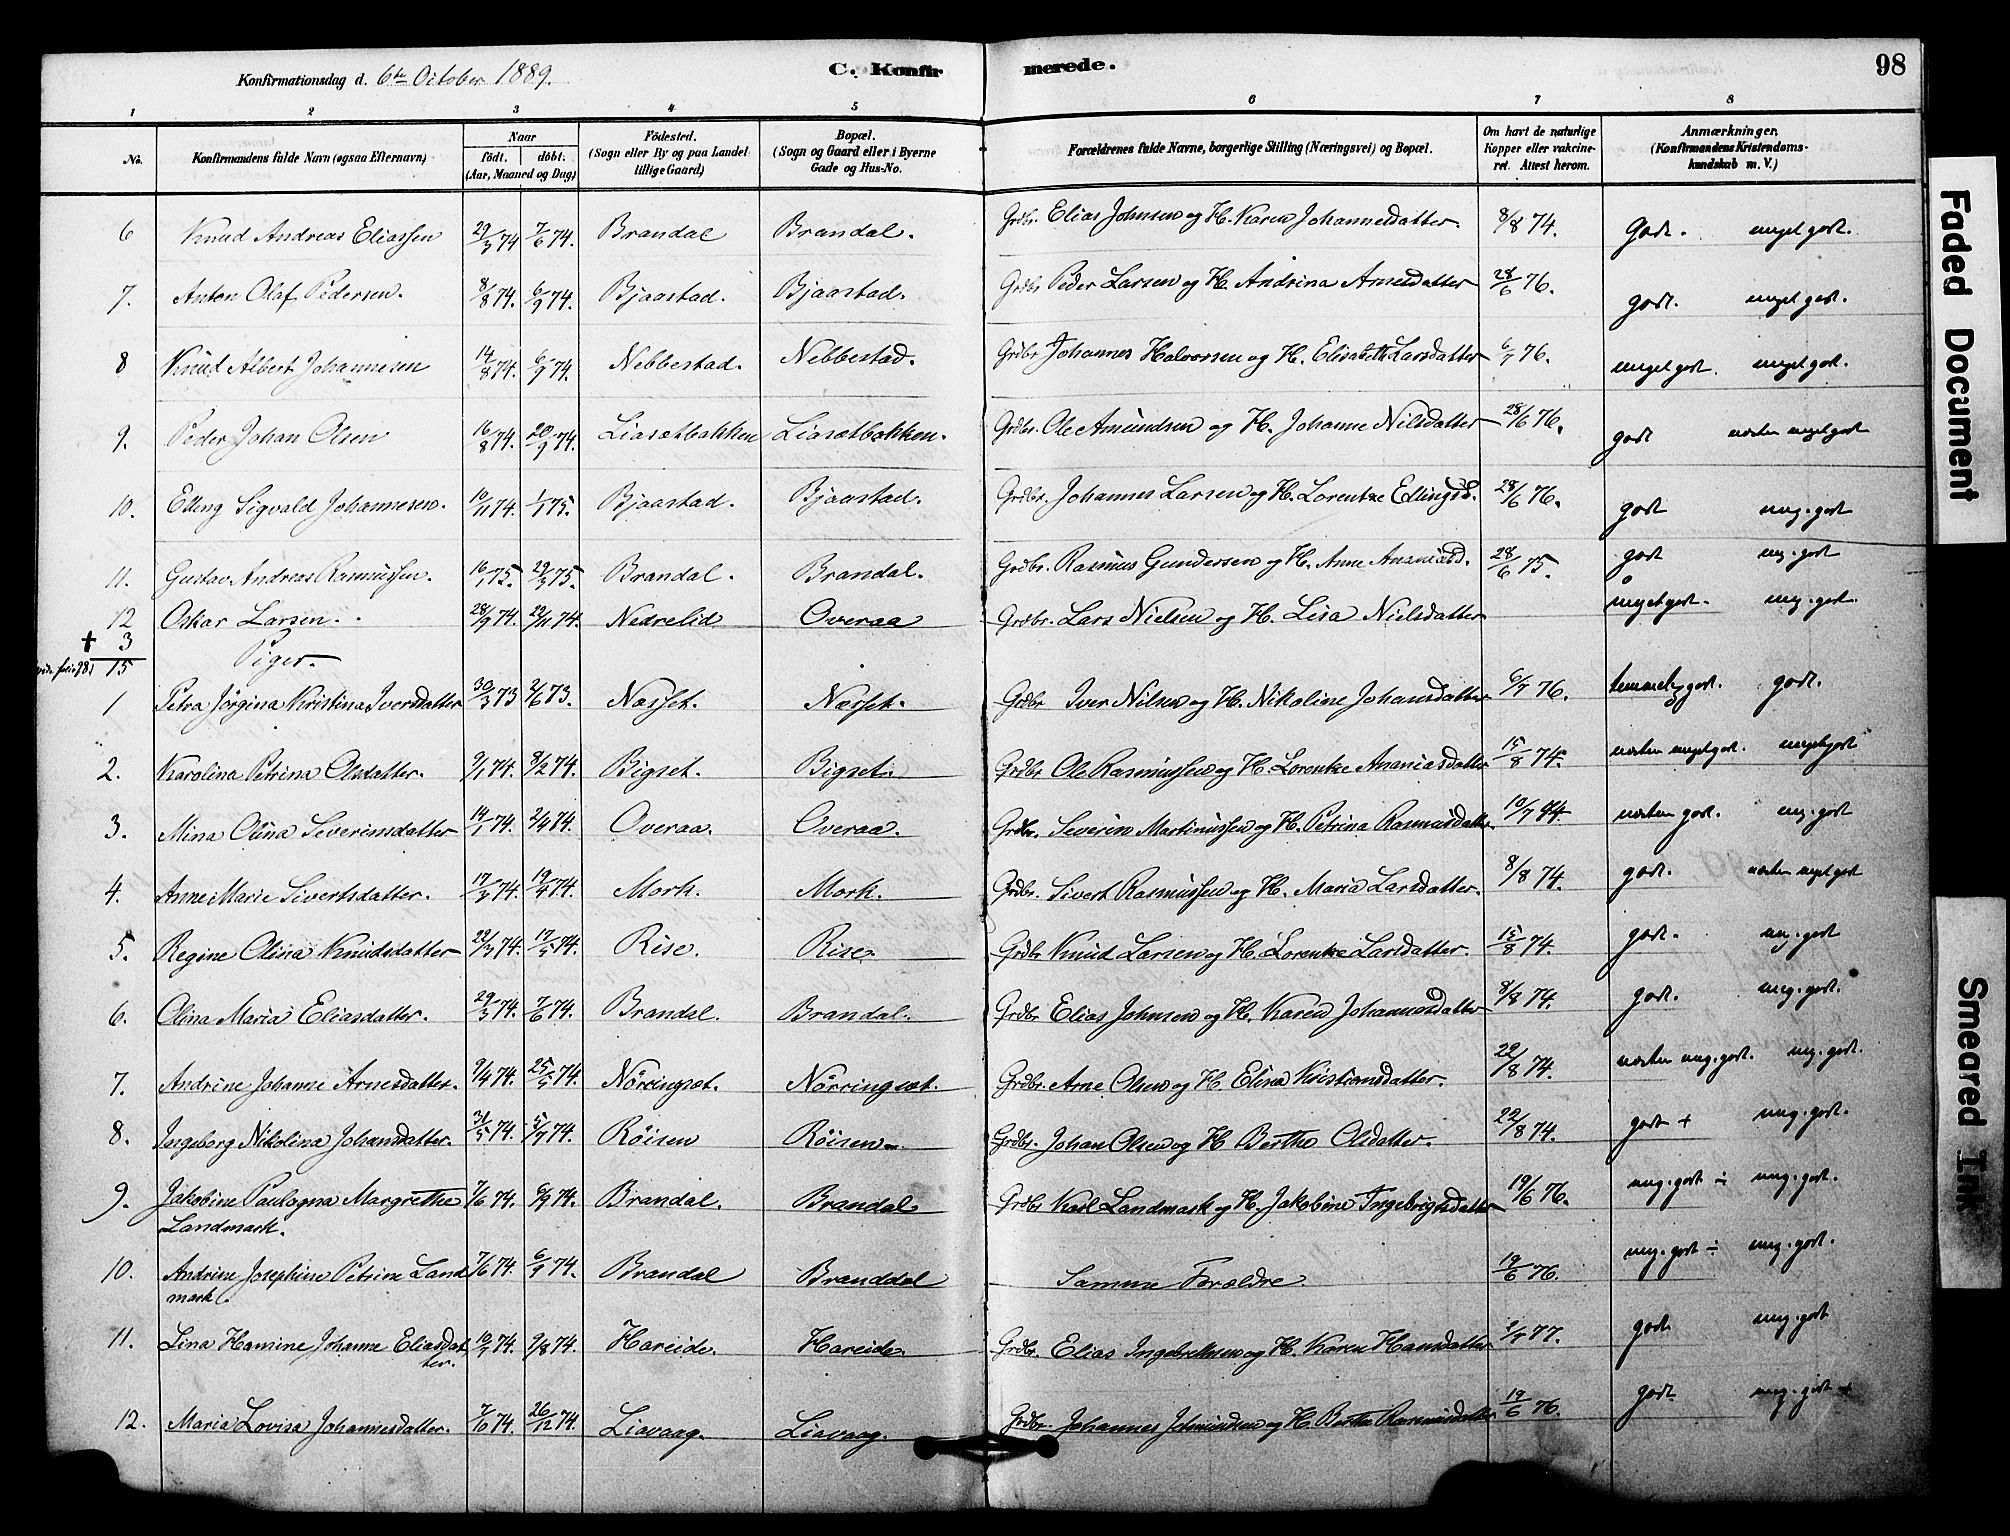 Konfirmationsdag d. 6te October 1889.
C. Konfirmerede.
98
1 2 3 4 5 6 7 8
No.
Konfirmandens fulde Navn (ogsaa Efternavn)
Naar
födt. döbt.
(Aar, Maaned og Dag)
Födested.
(Sogn eller By og paa Landet
tillige Gaard)
Bopæl.
(Sogn og Gaard eller i Byerne
Gade og Hus-No.
Forældrenes fulde Navne, borgerlige Stilling (Næringsvei) og Bopæl.
Om havt de naturlige
Kopper eller vakcine-
ret. Attest herom.
Anmærkninger.
(Konfirmandens Kristendoms-
kundskab m. V.)
6 Knud Andreas Eliassen 29/3 74 7/6 74. Brandal Brandal. Grdbr. Elias Johnsen og H. Karen Johannesdatter. 8/8 74. Godt. meget godt.
7. Anton Olaf Pedersen. 8/8 74. 6/9 74. Bjaastad. Bjaastad. Grdbr Peder Larsen og H. Andrina Arnesdatter 28/6 76. godt. meget godt.
8 Knud Albert Johannesen 14/8 74. 6/9 74. Nebbestad. Nebbestad. Grdbr Johannes Halvorsen og H. Elisabeth Larsdatter 6/7 76. meget godt. meget godt.
9. Peder Johan Olsen 16/8 74. 20/9 74. Liasætbakken Liasætbakken. Grdbr. Ole Amundsen og H. Johanne Nilsdatter 28/6 76. godt næsten meget godt
10. Elling Sigvald Johannesen. 10/11 74. 1/1 75. Bjaastad. Bjaastad. Grdbr. Johannes Larsen og H. Lorentze Ellingsd. 28/6 76. godt meg. godt
11. Gustav Andreas Rasmussen. 16/1 75. 29/3 75. Brandal. Brandal. Grdbr. Rasmus Gundersen og H. Anne Ananiasd. 28/6 75. godt mg. godt
12 Oskar Larsen. 28/9 74. 22/11 74. Nedrelid Overaa Grdbr. Lars Nielsen og H. Lisa Nielsdatter meget godt. meg. godt.
+ 3
15
Piger.
1 Petra Jörgina Kristina Iversdatter 30/3 73 2/6 73. Næsset. Næsset. Grdbr Iver Nilsen og H. Nikoline Johansdatter 6/7 76. temmelig godt. godt.
2. Karolina Petrina Olsdatter. 9/1 74. 8/2 74. Bigset. Bigset. Grdbr Ole Rasmussen og H. Lorentze Ananiasdatter 15/8 74. næsten meget godt. meget godt
3. Mina Olina Severinsdatter 14/1 74. 2/4 84. Overaa. Overaa. Grdbr. Severin Martinussen og H. Petrina Rasmusdatter. 10/7 74. næsten godt. meg. godt
4. Anne Marie Sivertsdatter. 17/3 74. 19/4 74. Mork. Mork. Grdbr. Sivert Rasmussen og H. Maria Larsdatter. 8/8 74. godt. næsten meget godt
5. Regine Olina Knudsdatter 22/3 74. 17/5 74. Rise. Rise. Grdbr Knud Larsen og H. Lorentze Larsdatter. 15/8 74. godt. meg. godt
6. Olina Maria Eliasdatter. 29/3 74. 7/6 74. Brandal. Brandal. Grdbr Elias Johnsen og H. Karen Johannesdatter 8/8 74. godt. meg. godt.
7. Andrine Johanne Arnesdatter. 9/4 74. 25/5 74. Nörringsæt. Nörringsæt. Grdbr. Arne Olsen og H. Elina Kristiansdatter. 22/8 74. næsten meg. godt. meg. godt.
8. Ingeborg Nikolina Johansdatter. 31/5 74. 5/7 74. Röisen Röisen Grdbr. Johan Olsen og H Berthe Olsdatter. 22/8 74. godt + meg. godt.
9. Jakobine Paulagna Margrethe 7/6 74. 6/9 74. Brandal. Brandal Grdbr Karl Landmark og H. Jakobine Ingebrigtsdatter 19/6 76. meg. godt ÷ meg. godt.
Landmark.
10. Andrine Josephine Petrine Land 7/6 74. 6/9 74. Brandal Branddal Samme Forældre. 19/6 76. meg. godt ÷ meg. godt.
mark.
11. Lina Hamine Johanne Eliasdat 10/7 74. 9/8 74. Hareide. Hareide. Grdbr. Elias Ingebrethsen og H. Karen Hansdatter 2/7 77. godt meg. godt
ter.
12. Maria Lovisa Johannesdatter. 7/10 74. 26/12 74. Liavaag. Liavaag. Grdbr. Johannes Johnsen og H. Berthe Rasmusdatter 19/6 76. godt. meg. godt +
Faded Document
Smeared Ink